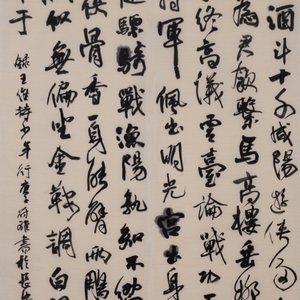 酒斗十千咸陽遊俠多
為君飲繫馬高樓垂柳
終高議雲臺論戰功
將軍佩出明光宮出身
隨驃騎戰漁陽孰知不
俠骨香一身能擘兩雕
似無偏坐金鞍調白
于 錄王維詩少年行 李 雅書於長